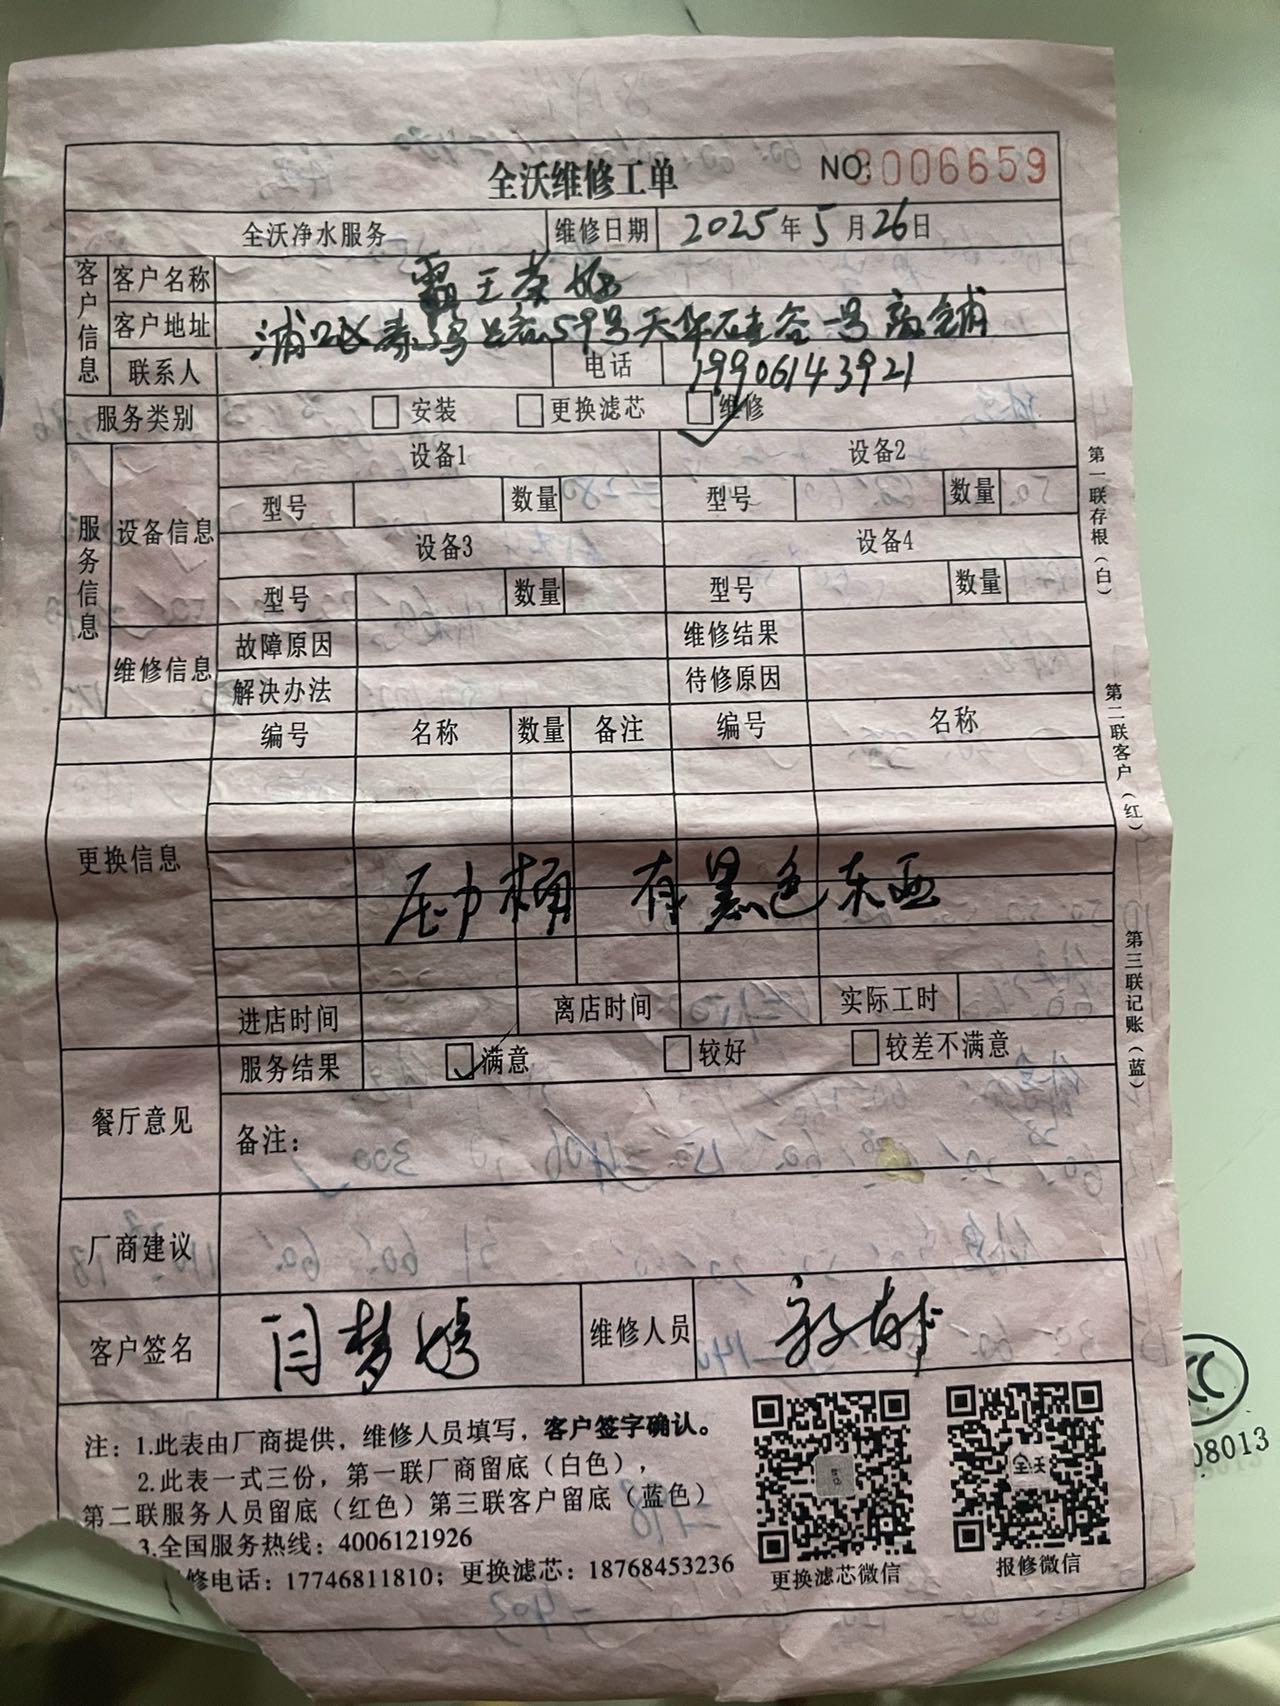 全沃维修工单 NO:0006659
全沃净水服务 维修日期 2025年5月26日
客户信息
客户名称 霸王茶姬
客户地址 浦口区 59号天华硅谷一号商铺
联系人 电话 19906143921
服务类别 安装 更换滤芯 维修
服务信息
设备信息 设备1 设备2
型号 数量 型号 数量
设备3 设备4
型号 数量 型号 数量
维修信息 故障原因 维修结果
解决办法 待修原因
编号 名称 数量 备注 编号 名称
更换信息
压力桶 有黑色东西
进店时间 离店时间 实际工时
服务结果 满意 较好 较差不满意
餐厅意见 备注：
厂商建议
客户签名 闫梦 维修人员
注：1.此表由厂商提供，维修人员填写，客户签字确认。
2.此表一式三份，第一联厂商留底（白色），
第二联服务人员留底（红色）第三联客户留底（蓝色）
3.全国服务热线：4006121926
修电话：17746811810；更换滤芯：18768453236
更换滤芯微信 报修微信
第一联存根（白）
第二联客户（红）
第三联记账（蓝）
08013